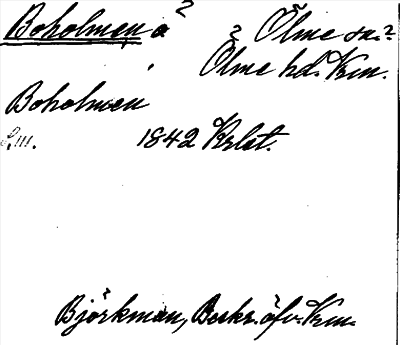 Boholmen å ? ? Ölme sn.?
Ölme hd. Vrm.
Boholmen
S. 111. 1842 Krlst.
Björkman, Beskr. öfv. Vrm.